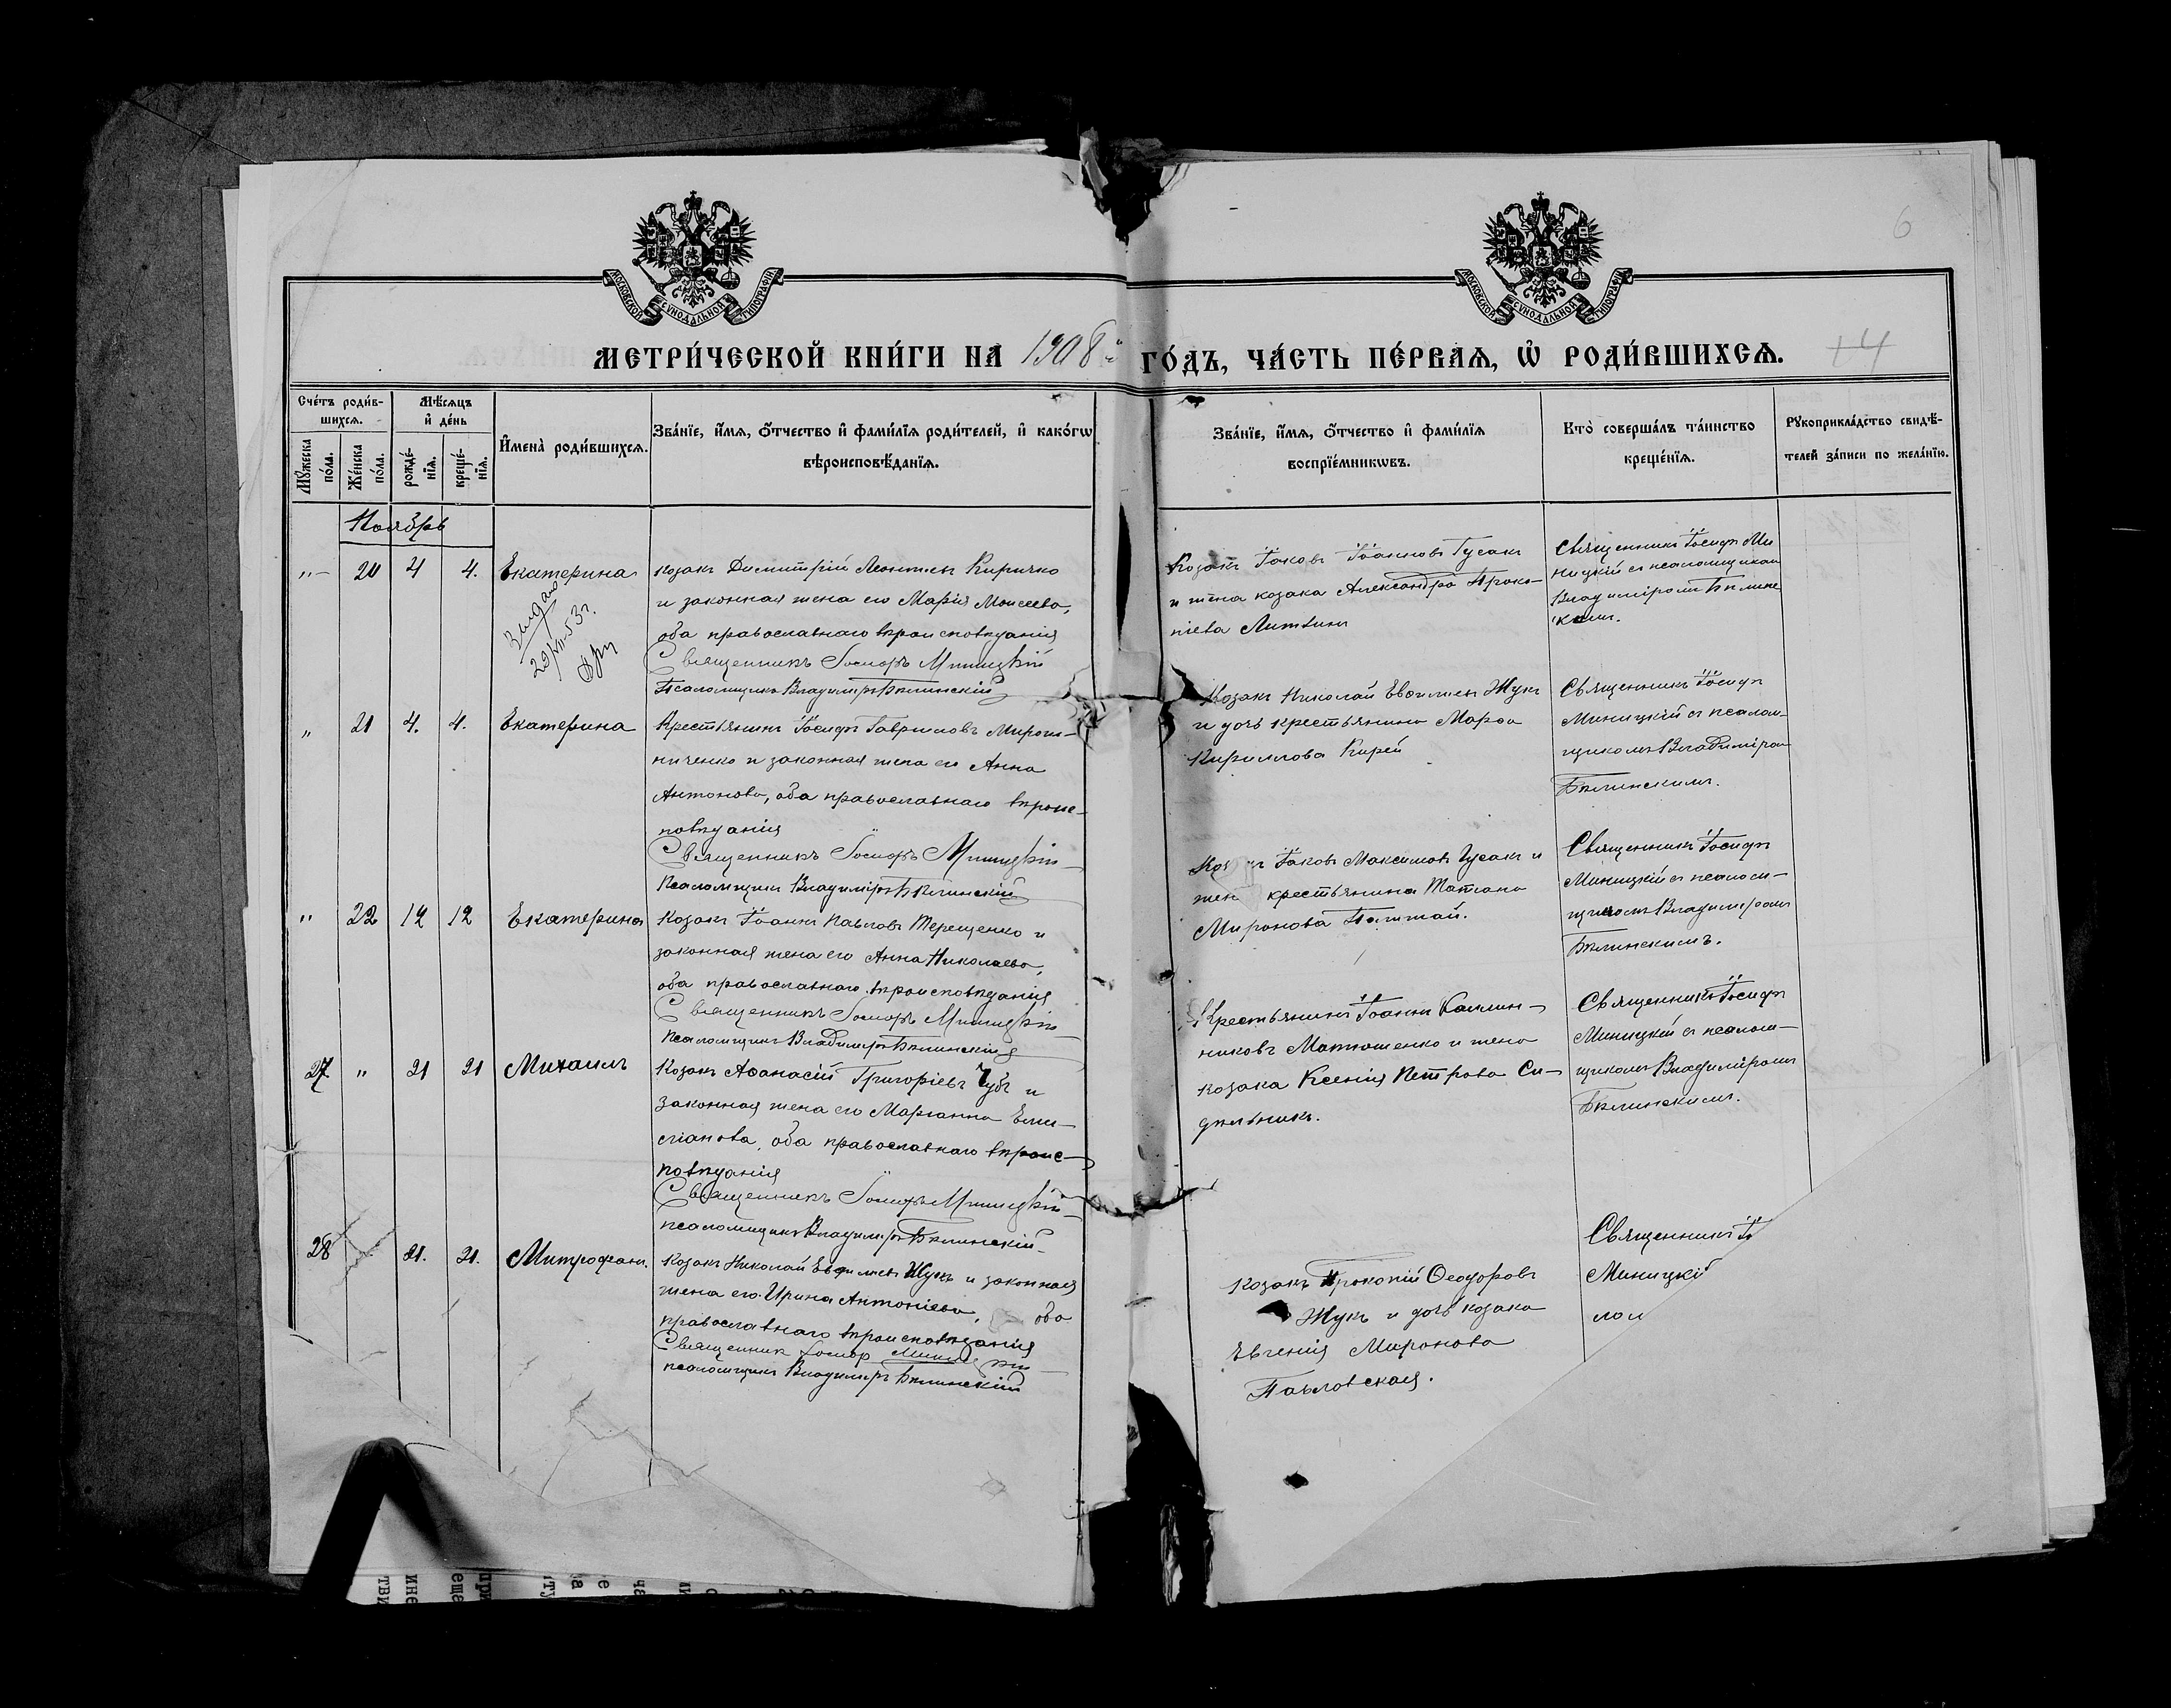 6
МОСКОВСКОЙ СУНОДАЛЬНОЙ ТИПОГРАФІИ
МОСКОВСКОЙ СУНОДАЛЬНОЙ ТИПОГРАФІИ
МЕТРИ́ЧЕСКОЙ КНИ́ГИ НА 1908й ГО́ДЪ, ЧА́СТЬ ПЕ́РВАѦ, Ѡ҆ РОДИ́ВШИХСѦ. 14
Сче́тъ роди́в-
шихсѧ.
Мꙋ́жеска по́ла.
Же́нска по́ла.
Мѣ́сѧцъ
и҆ де́нь
рожде́-
нїѧ.
креще́-
нїѧ.
И҆мена̀ роди́вшихсѧ.
Зва́нїе, и҆́мѧ, ѻ҆́тчество и҆ фами́лїѧ роди́телей, и҆ како́гѡ
вѣроисповѣ́данїѧ.
Зва́нїе, и҆́мѧ, ѻ҆́тчество и҆ фами́лїѧ
воспрїе́мникѡвъ.
Кто̀ соверша́лъ та́инство
креще́нїѧ.
Рꙋкоприкла́дство свидѣ́-
телей за́писи по жела́нїю.
Ноябрь
"– 20 4 4. Екатерина
Козакъ Димитрій Леонтьевъ Киричко
и законная жена его Марія Моисеева,
оба православнаго вѣроисповѣданія
Священникъ Іосифъ Миницкій
Псаломщикъ Владиміръ Бѣлинскій
Козакъ Іаковъ Іоанновъ Гусакъ
и жена козака Александра Проко-
піева Литвинъ
Священникъ Іосифъ Ми
ницкій съ псаломщикомъ
Владиміромъ Бѣлинс
кимъ.
" 21 4. 4. Екатерина
Крестьянинъ Іосифъ Гавриловъ Мирош-
ниченко и законная жена его Анна
Антонова, оба православнаго вѣроис-
повѣданія
Священникъ Іосифъ Миницкій
Псаломщикъ Владиміръ Бѣлинскій
Козакъ Николай Евфиміевъ Жукъ
и дочь крестьянина Марфа
Кириллова Кирей
Священникъ Іосифъ
Миницкій съ псалом-
щикомъ Владиміром
Бѣлинскимъ.
" 22 12 12 Екатерина
Козакъ Іоаннъ Павловъ Терещенко и
законная жена его Анна Николаева,
оба православнаго вѣроисповѣданія
Священникъ Іосифъ Миницкій
Псаломщикъ Владиміръ Бѣлинскій
Іаковъ Максимовъ Гусакъ и
жен крестьянина Татіана
Миронова
Священникъ Іосифъ
Миницкій съ псалом-
щикомъ Владиміромъ
Бѣлинскимъ.
27 " 21 21 Михаилъ
Козакъ Аѳанасій Григоріевъ Чубъ и
законная жена его Маріанна Еми-
ліанова, оба православнаго вѣроис-
повѣданія
Священникъ Іосифъ Миницкій
псаломщикъ Владиміръ Бѣлинскій
Крестьянинъ Іоаннъ Каллин-
никовъ Матюшенко и жена
козака Ксенія Петрова Си-
дѣльникъ.
Священникъ Іосифъ
Миницкій съ псалом-
щикомъ Владиміромъ
Бѣлинскимъ.
28 21. 21. Митрофанъ
Козакъ Николай Евфиміевъ Жукъ и законная
жена его Ирина Антоніева, оба
православнаго вѣроисповѣданія
Священникъ Іосифъ Миницкій
псаломщикъ Владиміръ Бѣлинскій
Козакъ Прокопій Ѳеодоровъ
Жукъ и дочь козака
Евгенія Миронова
Павловская.
Священникъ І
Миницкій
лом